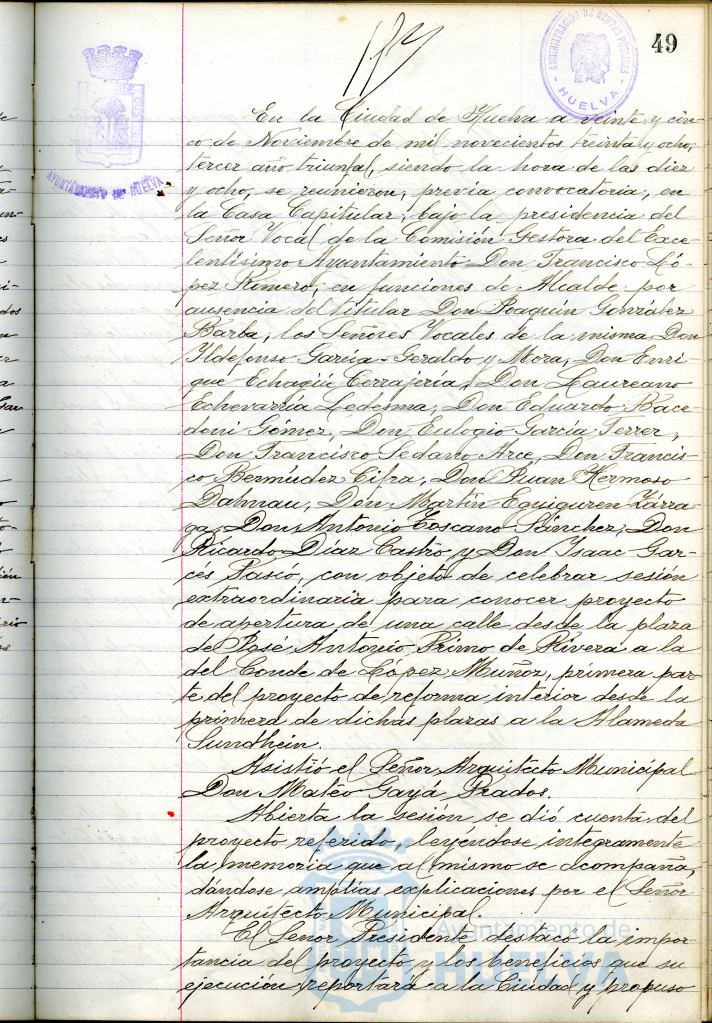 ADMINISTRACIÓN DE RENTAS PÚBLICAS
HUELVA
49
AYUNTAMIENTO DE HUELVA
En la Ciudad de Huelva a veinte y cin-
co de Noviembre de mil novecientos treinta y ocho,
tercer año triunfal, siendo la hora de las diez
y ocho, se reunieron, previa convocatoria, en
la Casa Capitular, bajo la presidencia del
Señor Vocal de la Comisión Gestora del Exce-
lentísimo Ayuntamiento Don Francisco Ló-
pez Romero, en funciones de Alcalde por
ausencia del titular Don Joaquín González
Barba, los Señores Vocales de la misma Don
Ildefonso García-Geraldo y Mora, Don Enri-
que Echagüe Cerrajería, Don Laureano
Echevarría Ledesma, Don Eduardo Bace-
doni Gómez, Don Eulogio García Ferrer,
Don Francisco Sedano Arce, Don Francis-
co Bermúdez Cifra, Don Juan Hermoso
Dalmau, Don Martín Eguiguren Zárra-
ga, Don Antonio Toscano Sánchez, Don
Ricardo Díaz Castro y Don Isaac Gar-
cés Pasió, con objeto de celebrar sesión
extraordinaria para conocer proyecto
de apertura de una calle desde la plaza
de José Antonio Primo de Rivera a la
del Conde de López Muñoz, primera par-
te del proyecto de reforma interior desde la
primera de dichas plazas a la Alameda
Sundhein.
Asistió el Señor Arquitecto Municipal
Don Mateo Gayá Prados.
Abierta la sesión se dió cuenta del
proyecto referido, leyéndose integramente
la memoria que al mismo se acompaña,
dándose amplias explicaciones por el Señor
Arquitecto Municipal.
El Señor Presidente destacó la impor-
tancia del proyecto y los beneficios que su
ejecución reportará a la Ciudad y propuso
Ayuntamiento de
HUELVA